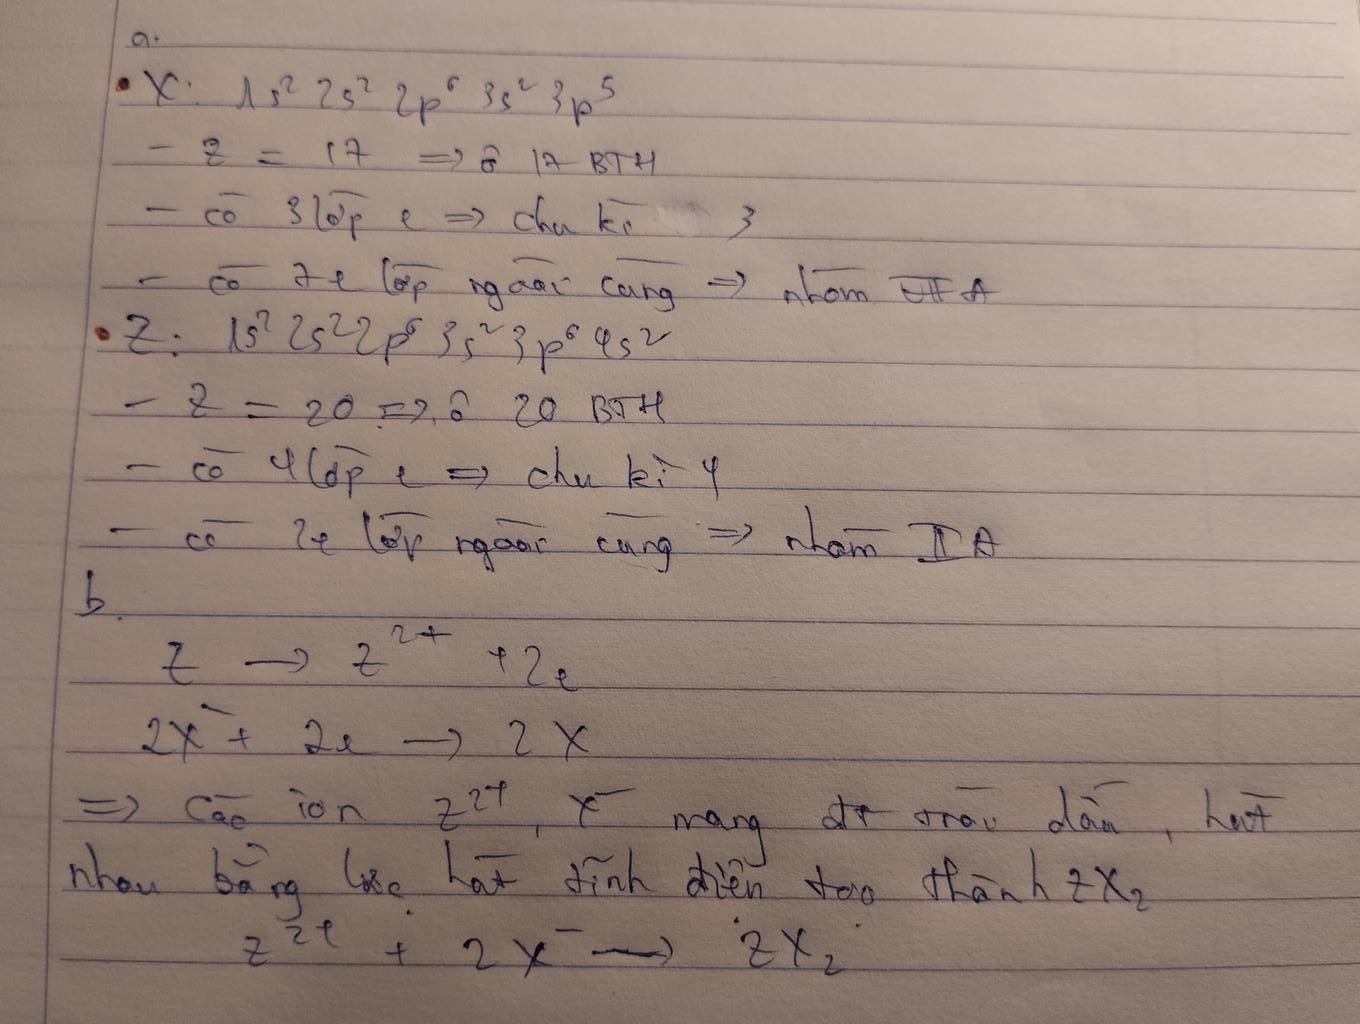 a.
• X: 1s² 2s² 2p⁶ 3s² 3p⁵
- Z = 17 => ô 17 BTH
- có 3 lớp e => chu kì 3
- có 7e lớp ngoài cùng => nhóm VIIA
• Z: 1s² 2s² 2p⁶ 3s² 3p⁶ 4s²
- Z = 20 => ô 20 BTH
- có 4 lớp e => chu kì 4
- có 2e lớp ngoài cùng => nhóm IIA
b.
Z → Z²⁺ + 2e
2X⁻ + 2e → 2X
=> Các ion Z²⁺, X⁻ mang đt trái dấu, hút
nhau bằng lực hút tĩnh điện tạo thành ZX₂
Z²⁺ + 2X⁻ → ZX₂